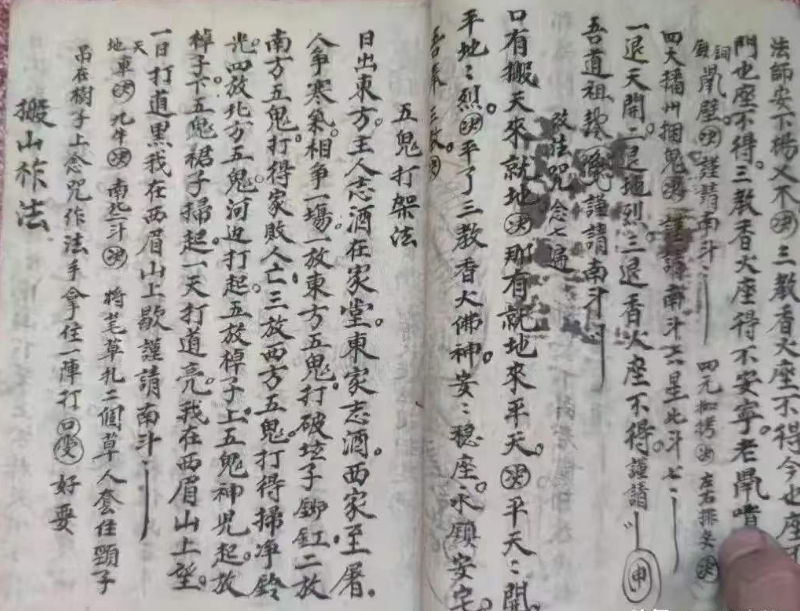 法師安下場又不 三教香火座不得今也座
門也座不得。三教香火座得不安寧老鼡嘈
銅鼡壁 謹請南斗
鎖
四元枷拷 左右排安
四大播州捆鬼 謹請南斗六星北斗七
一退天開二退地烈三退香火座不得。謹請 申
吾道祖 謹請南斗
改法咒念七遍
只有搬天來就地 那有就地來平天。平天開
平地烈 平了三教香火佛神安穩座。永鎮安宅
吾奉三教
五鬼打架法
日出東方。主人志酒在家堂。東家志酒。西家至屠。
人爭寒氣。相爭一場一放東方五鬼。打破坛子鉚釭二放
南方五鬼。打得家敗人亡三放西方五鬼。打得掃凈鈴
光。四放北方五鬼。河边打起。五放棹子上。五鬼神児起。放
棹子卞五鬼裙子掃起一天打道亮。我在西眉山上望。
一日打道黒我在西眉山上歇謹請南斗
天
地車 九牛 南北二斗 將茅草扎二個草人套住頸子
吊在樹子上念咒作法手拿住一陣打 好耍
搬山柞法